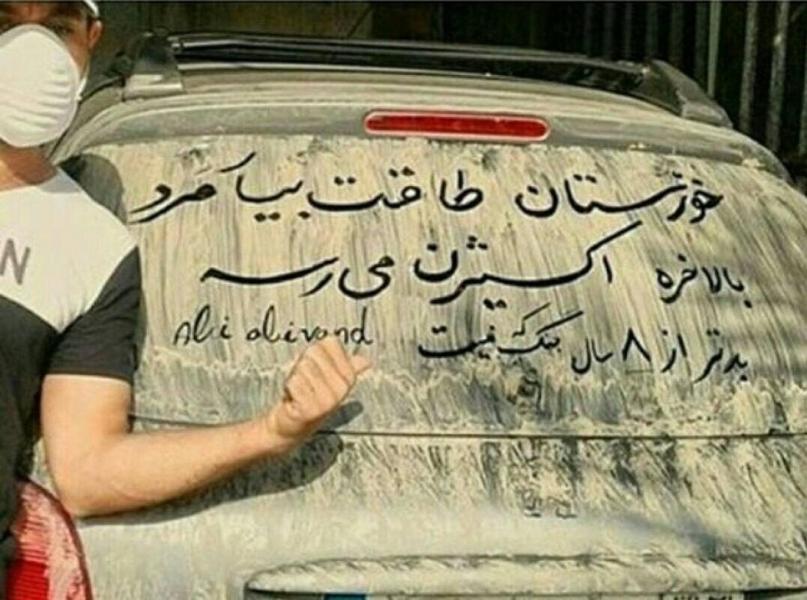 خوزستان طاقت بیار مرد
بالاخره اکسیژن می رسه
بدتر از ۸ سال جنگ که نیست
Ali alivand
N